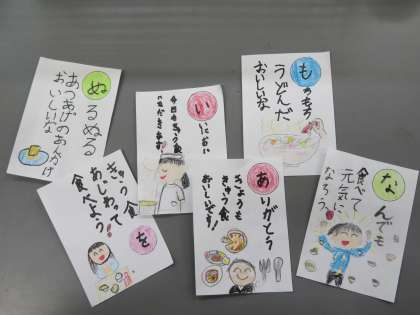 ぬるぬる
あつあげのあんかけ
おいしいな
いいにおい
今日もきゅう食
いただきます
もちもち
うどんだ
おいしいな
を
きゅう食
あじわって
食べよう！
ありがとう
きょうも
きゅう食
おいしいです！
なんでも
食べて
元気に
なろう。